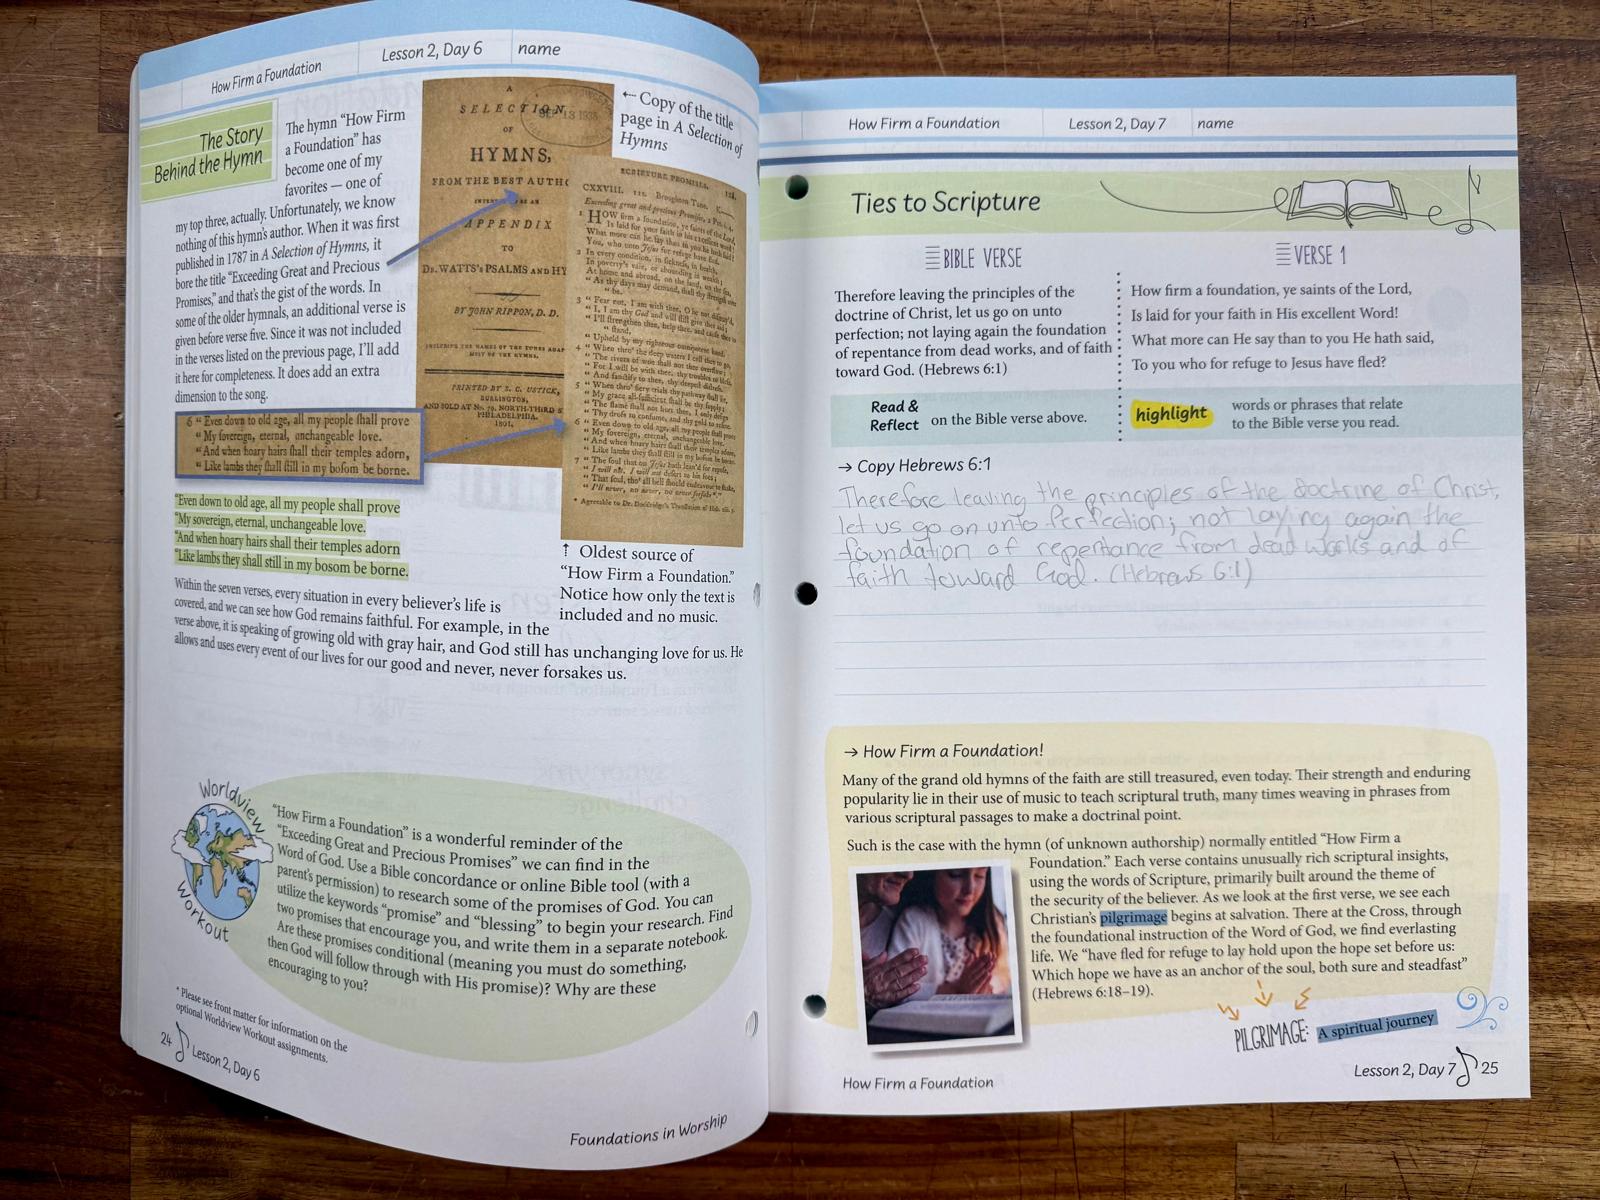 How Firm a Foundation
Lesson 2, Day 6
name
The Story
Behind the Hymn
The hymn “How Firm
a Foundation” has
become one of my
favorites — one of
my top three, actually. Unfortunately, we know
nothing of this hymn’s author. When it was first
published in 1787 in A Selection of Hymns, it
bore the title “Exceeding Great and Precious
Promises,” and that’s the gist of the words. In
some of the older hymnals, an additional verse is
given before verse five. Since it was not included
in the verses listed on the previous page, I’ll add
it here for completeness. It does add an extra
dimension to the song.
6 “ Even down to old age, all my people ſhall prove
“ My ſovereign, eternal, unchangeable love.
“ And when hoary hairs ſhall their temples adorn,
“ Like lambs they ſhall ſtill in my boſom be borne.
“Even down to old age, all my people shall prove
“My sovereign, eternal, unchangeable love.
“And when hoary hairs shall their temples adorn
“Like lambs they shall still in my bosom be borne.
A
SELECTION
SEP 13 1935
OF
HYMNS,
FROM THE BEST AUTHO
APPENDIX
TO
DR. WATTS's PSALMS AND HY
BY JOHN RIPPON, D. D.
INCLUDING THE NAMES OF THE TUNES ADAP
MOST OF THE HYMNS.
PRINTED BY S. C. USTICK,
BURLINGTON,
AND SOLD AT No. 79, NORTH-THIRD S
PHILADELPHIA.
1801.
← Copy of the title
page in A Selection of
Hymns
SCRIPTURE PROMISES.
CXXVIII. 11s. Broughton Tune.
Exceeding great and precious Promises, 2 Pet. i. 4.
1 HOW firm a foundation, ye ſaints of the Lord,
Is laid for your faith in his excellent word!
What more can he ſay than to you he hath ſaid?
You, who unto Jeſus for refuge have fled.
2 In every condition, in ſickneſs, in health,
In poverty's vale, or abounding in wealth;
At home and abroad, on the land, on the ſea,
“ As thy days may demand, ſhall thy ſtrength ever
“ be.
3 “ Fear not, I am with thee, O be not diſmay'd,
“ I, I am thy God and will ſtill give thee aid;
“ I'll ſtrengthen thee, help thee, and cauſe thee to
“ ſtand,
“ Upheld by my righteous omnipotent hand.
4 “ When thro' the deep waters I call thee to go,
“ The rivers of woe ſhall not thee overflow;
“ For I will be with thee, thy troubles to bleſs,
“ And ſanctify to thee, thy deepeſt diſtreſs.
5 “ When thro' fiery trials thy pathway ſhall lie,
“ My grace all-ſufficient ſhall be thy ſupply;
“ The flame ſhall not hurt thee, I only deſign
“ Thy droſs to conſume, and thy gold to refine.
6 “ Even down to old age, all my people ſhall prove
“ My ſovereign, eternal, unchangeable love.
“ And when hoary hairs ſhall their temples adorn,
“ Like lambs they ſhall ſtill in my boſom be borne.
7 “ The ſoul that on Jeſus hath lean'd for repoſe,
“ I will not, I will not deſert to his foes;
“ That ſoul, tho' all hell ſhould endeavour to ſhake,
“ I'll never, no never, no never forſake*.”
* Agreeable to Dr. Doddridge's Tranſlation of Heb. xiii. 5.
↑ Oldest source of
“How Firm a Foundation.”
Notice how only the text is
included and no music.
Within the seven verses, every situation in every believer’s life is
covered, and we can see how God remains faithful. For example, in the
verse above, it is speaking of growing old with gray hair, and God still has unchanging love for us. He
allows and uses every event of our lives for our good and never, never forsakes us.
Worldview
Workout
“How Firm a Foundation” is a wonderful reminder of the
“Exceeding Great and Precious Promises” we can find in the
Word of God. Use a Bible concordance or online Bible tool (with a
parent’s permission) to research some of the promises of God. You can
utilize the keywords “promise” and “blessing” to begin your research. Find
two promises that encourage you, and write them in a separate notebook.
Are these promises conditional (meaning you must do something,
then God will follow through with His promise)? Why are these
encouraging to you?
* Please see front matter for information on the
optional Worldview Workout assignments.
24
Lesson 2, Day 6
Foundations in Worship
How Firm a Foundation
Lesson 2, Day 7
name
Ties to Scripture
BIBLE VERSE
Therefore leaving the principles of the
doctrine of Christ, let us go on unto
perfection; not laying again the foundation
of repentance from dead works, and of faith
toward God. (Hebrews 6:1)
VERSE 1
How firm a foundation, ye saints of the Lord,
Is laid for your faith in His excellent Word!
What more can He say than to you He hath said,
To you who for refuge to Jesus have fled?
Read &
Reflect
on the Bible verse above.
highlight
words or phrases that relate
to the Bible verse you read.
→ Copy Hebrews 6:1
Therefore leaving the principles of the doctrine of Christ,
let us go on unto Perfection; not laying again the
foundation of repentance from dead works and of
faith toward God. (Hebrews 6:1)
→ How Firm a Foundation!
Many of the grand old hymns of the faith are still treasured, even today. Their strength and enduring
popularity lie in their use of music to teach scriptural truth, many times weaving in phrases from
various scriptural passages to make a doctrinal point.
Such is the case with the hymn (of unknown authorship) normally entitled “How Firm a
Foundation.” Each verse contains unusually rich scriptural insights,
using the words of Scripture, primarily built around the theme of
the security of the believer. As we look at the first verse, we see each
Christian’s pilgrimage begins at salvation. There at the Cross, through
the foundational instruction of the Word of God, we find everlasting
life. We “have fled for refuge to lay hold upon the hope set before us:
Which hope we have as an anchor of the soul, both sure and steadfast”
(Hebrews 6:18–19).
PILGRIMAGE: A spiritual journey
How Firm a Foundation
Lesson 2, Day 7
25